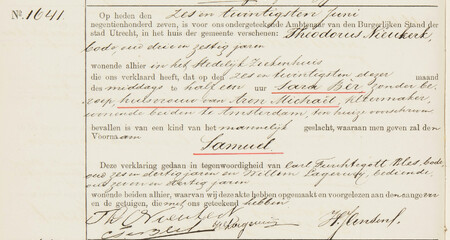 No. 1641
Op heden den zes en twintigsten juni
negentienhonderd zeven, is voor ons ondergeteekende Ambtenaar van den Burgerlijken Stand der
stad Utrecht, in het huis der gemeente verschenen: Theodorus Nieukerk,
bode oud drie en zestig jaren
wonende alhier in het Stedelijk Ziekenhuis
die ons verklaard heeft, dat op den zes en twintigsten dezer maand
des middags te half een uur Sara Bèr, zonder be-
roep, huisvrouw van Aron Michaël, sittenmaker,
wonende beiden te Amsterdam, ten huize voorschreven
bevallen is van een kind van het mannelijk geslacht, waaraan men geven zal den
Voornaam
Samuel
Deze verklaring gedaan in tegenwoordigheid van Carl Furchtigott Ples, bode
oud zes en dertig jaren en Willem Lagerwey, bediende
oud zeven en dertig jaren
wonende beiden alhier, waarvan wij deze akte hebben opgemaakt en voorgelezen aan den aangever
en de getuigen, die met ons geteekend hebben